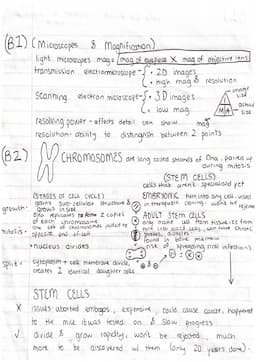 (B1) (Microscopes & Magnification)
light microscopes mag = mag of eyepiece X mag of objective lens
transmission electronmicroscope - • 2D images
• high mag & resolution
Scanning electron microscope - • 3D images
• low mag
image size
M A
actual size
resolving power - affects detail can show mag
resolution - ability to distinguish between 2 points
(B2) CHROMOSOMES are long coiled strands of Dna, paired up
during mitosis
(STEM CELLS)
cells that aren't specialised yet
(STAGES OF CELL CYCLE)
growth: gains sub-cellular structures &
grows in size
Dna replicates to form 2 copies
of each chromosome
mitosis: one set of chromosomes pulled to
opposite end of cell
• nucleus divides
split: cytoplasm + cell membrane divide,
creates 2 identical daughter cells
EMBRYONIC turn into any cell, used
in therapeutic cloning: would be rejected
ADULT STEM CELLS
only make cells from tissue its from
found in bone marrow
risk of spreading viral infections
STEM CELLS
X issues: aborted embryos, expensive, could cause cancer, happened
to the mice it was tested on & slow progress
✓ divide & grow rapidly, won't be rejected, much
more to be discovered w/ them (only 20 years done).